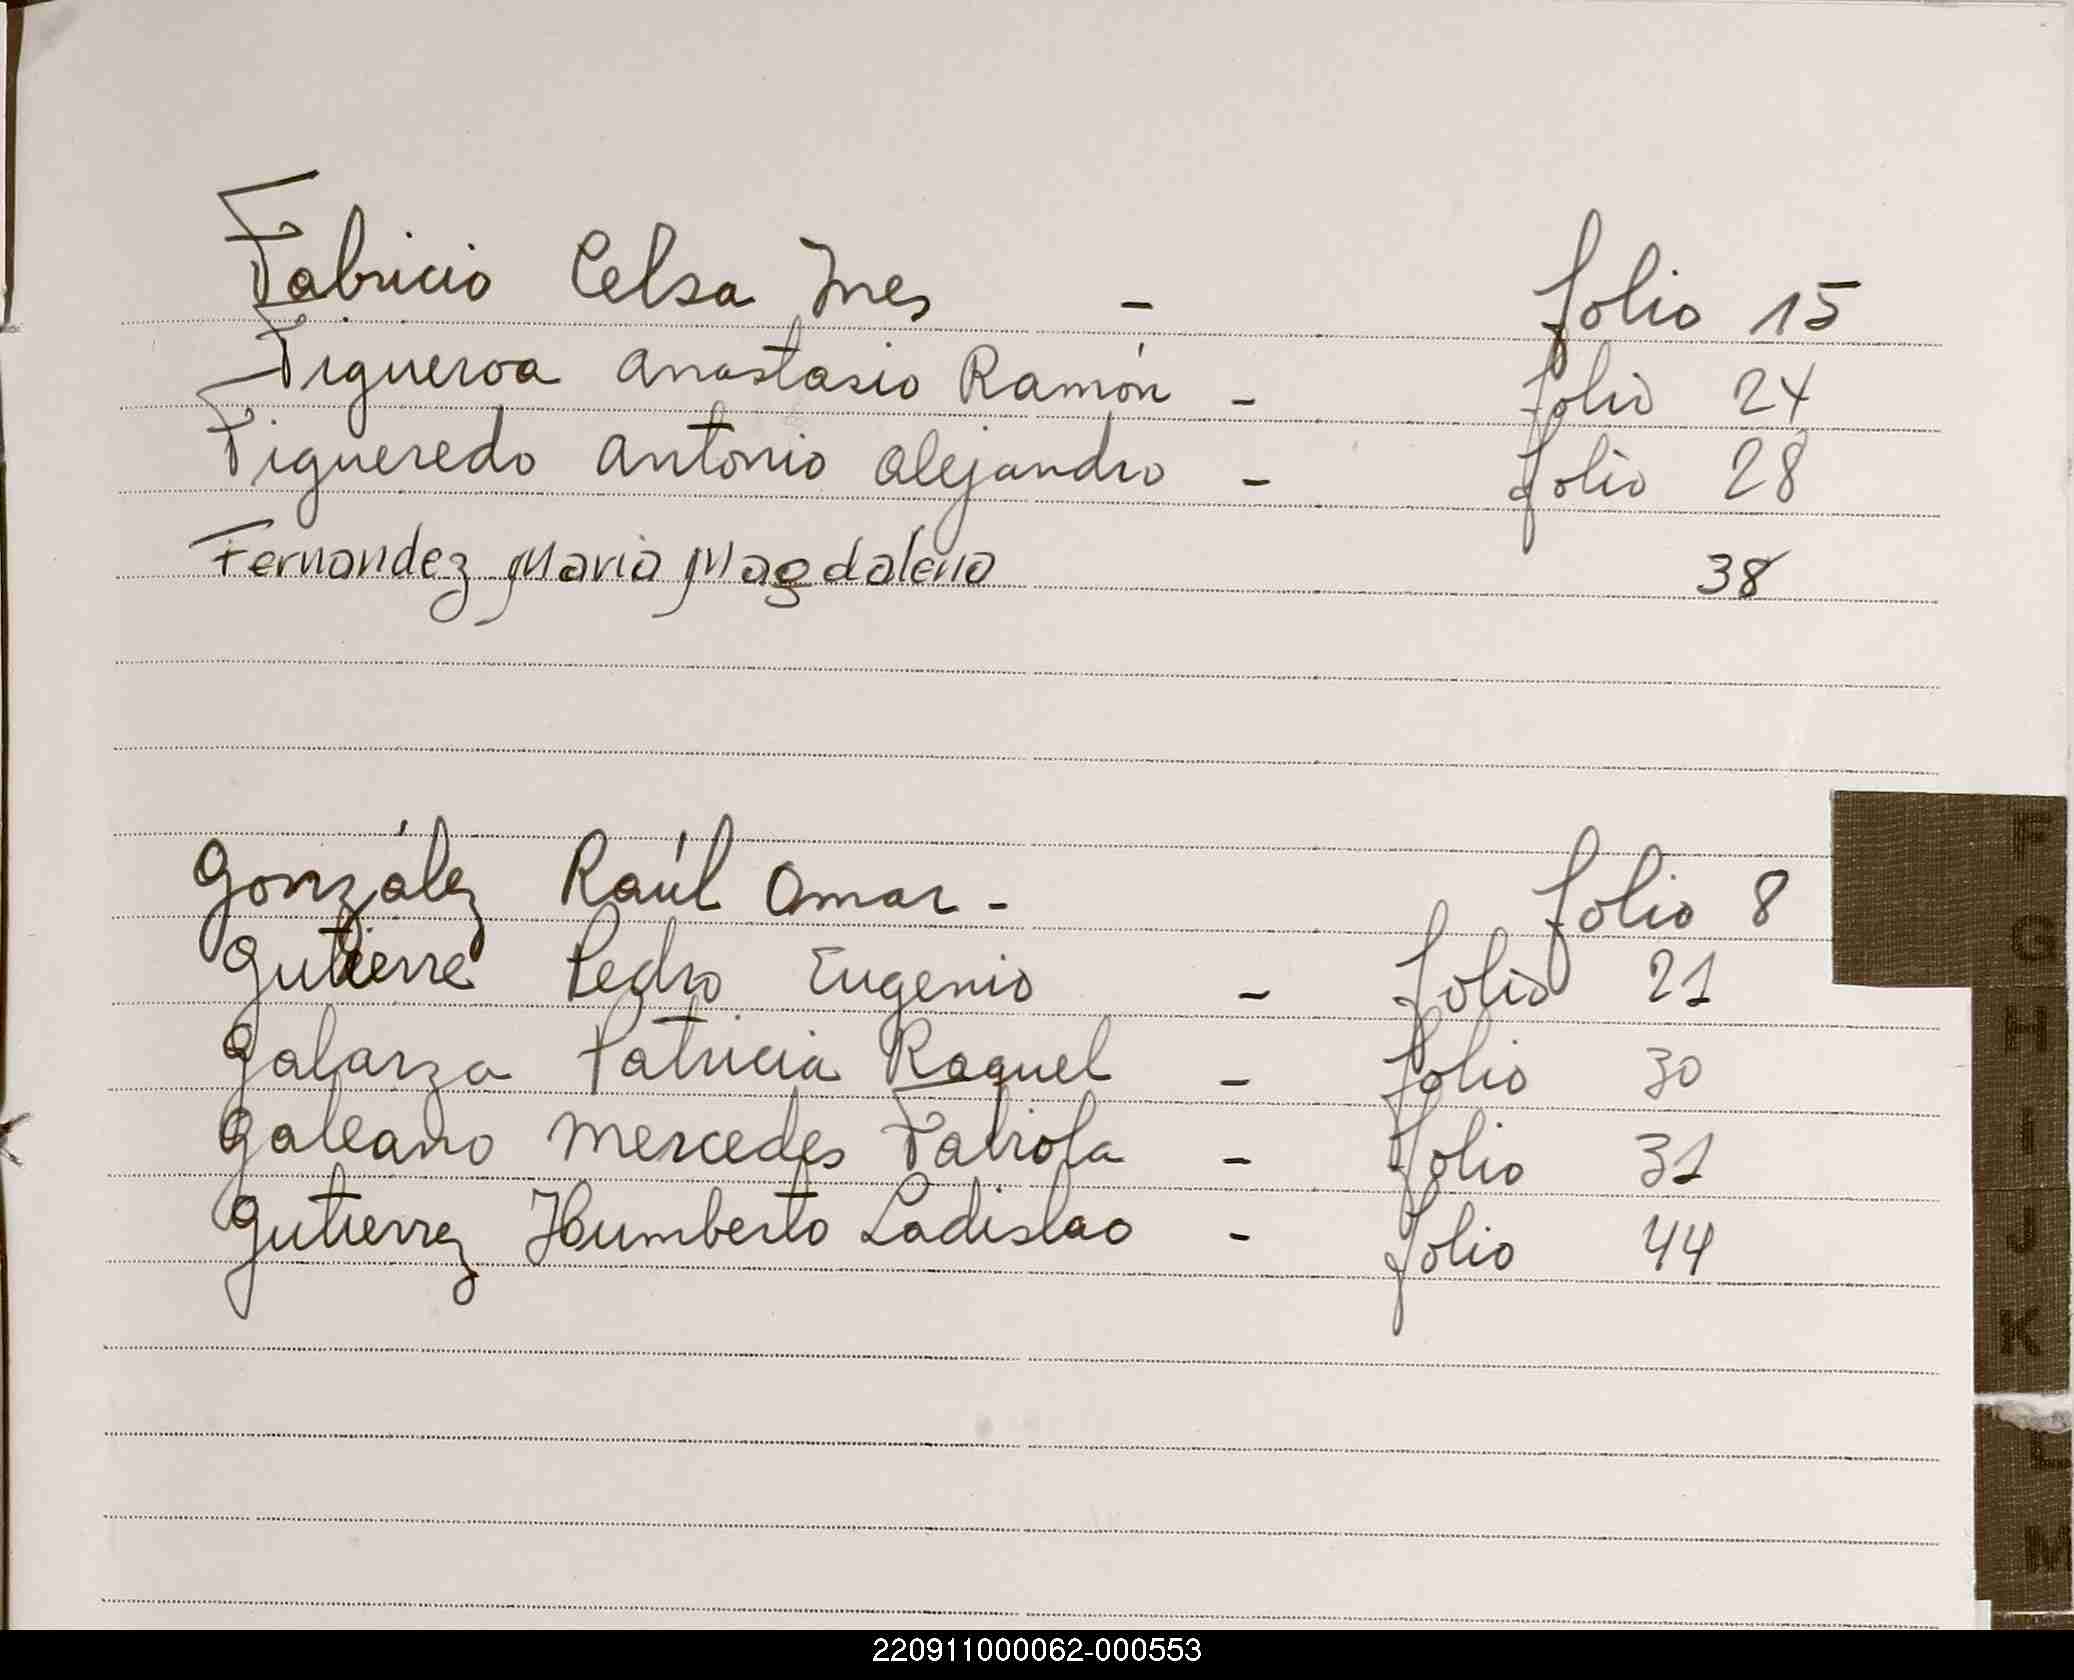 Fabricio Celsa Ines - folio 15
Figueroa Anastasio Ramón - folio 24
Figueredo Antonio Alejandro - folio 28
Fernandez Maria Magdalena 38
González Raúl Omar - folio 8
Gutierre Pedro Eugenio - folio 21
Galarza Patricia Raquel - folio 30
Galeano Mercedes Fabiola - folio 31
Gutierrez Humberto Ladislao - folio 44
F
G
H
I
J
K
L
M
220911000062-000553